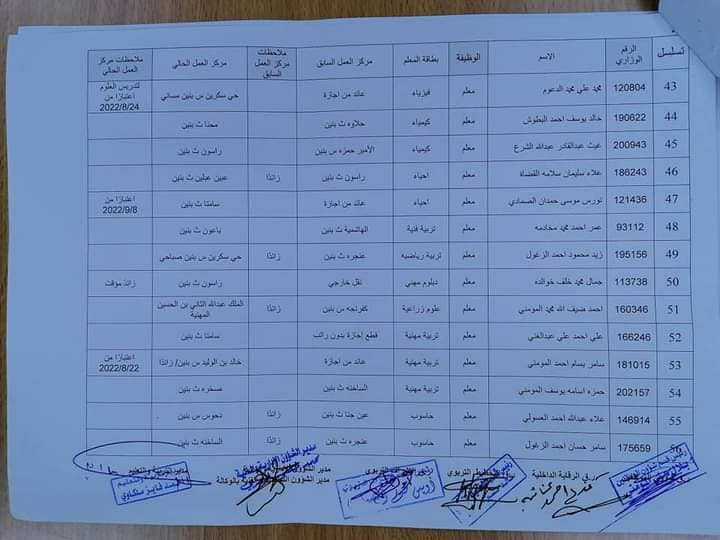 تسلسل الرقم الوزاري الاسم الوظيفة بطاقة المعلم مركز العمل السابق ملاحظات مركز العمل السابق مركز العمل الحالي ملاحظات مركز العمل الحالي
43 120804 محمد علي محمد الدعوم معلم فيزياء عائد من اجازة حي سكرين س بنين مسائي لتدريس العلوم اعتبارًا من 2022/8/24
44 190622 خالد يوسف احمد البطوش معلم كيمياء حلاوه ث بنين محنا ث بنين
45 200943 غيث عبدالقادر عبدالله الشرع معلم كيمياء الأمير حمزه س بنين راسون ث بنين
46 186243 علاء سليمان سلامه القضاة معلم احياء راسون ث بنين زائدًا عبين عبلين ث بنين
47 121436 نورس موسى حمدان الصمادي معلم احياء عائد من اجازة سامتا ث بنين اعتبارًا من 2022/9/8
48 93112 عمر احمد محمد مخادمه معلم تربية فنية الهاشمية ث بنين باعون ث بنين
49 195156 زيد محمود احمد الزغول معلم تربية رياضيه عنجره ث بنين زائدًا حي سكرين س بنين صباحي
50 113738 جمال محمد خلف خوالده معلم دبلوم مهني نقل خارجي راسون ث بنين زائد مؤقت
51 160346 احمد ضيف الله محمد المومني معلم علوم زراعية كفرنجه س بنين زائدًا الملك عبدالله الثاني بن الحسين المهنية
52 166246 علي احمد علي عبدالغني معلم تربية مهنية قطع إجازة بدون راتب سامتا ث بنين
53 181015 سامر بسام احمد المومني معلم تربية مهنية عائد من اجازة خالد بن الوليد س بنين/ زائدًا اعتبارًا من 2022/8/22
54 202157 حمزه اسامه يوسف المومني معلم تربية مهنية الساخنه ث بنين صخره ث بنين
55 146914 علاء عبدالله احمد العسولي معلم حاسوب عين جنا ث بنين زائدًا دحوس س بنين
175659 سامر حسان احمد الزغول معلم حاسوب عنجره ث بنين زائدًا الساخنه ث بنين
الرقابة الداخلية التربوي مدير الشؤون
مدير الشؤون بالوكالة